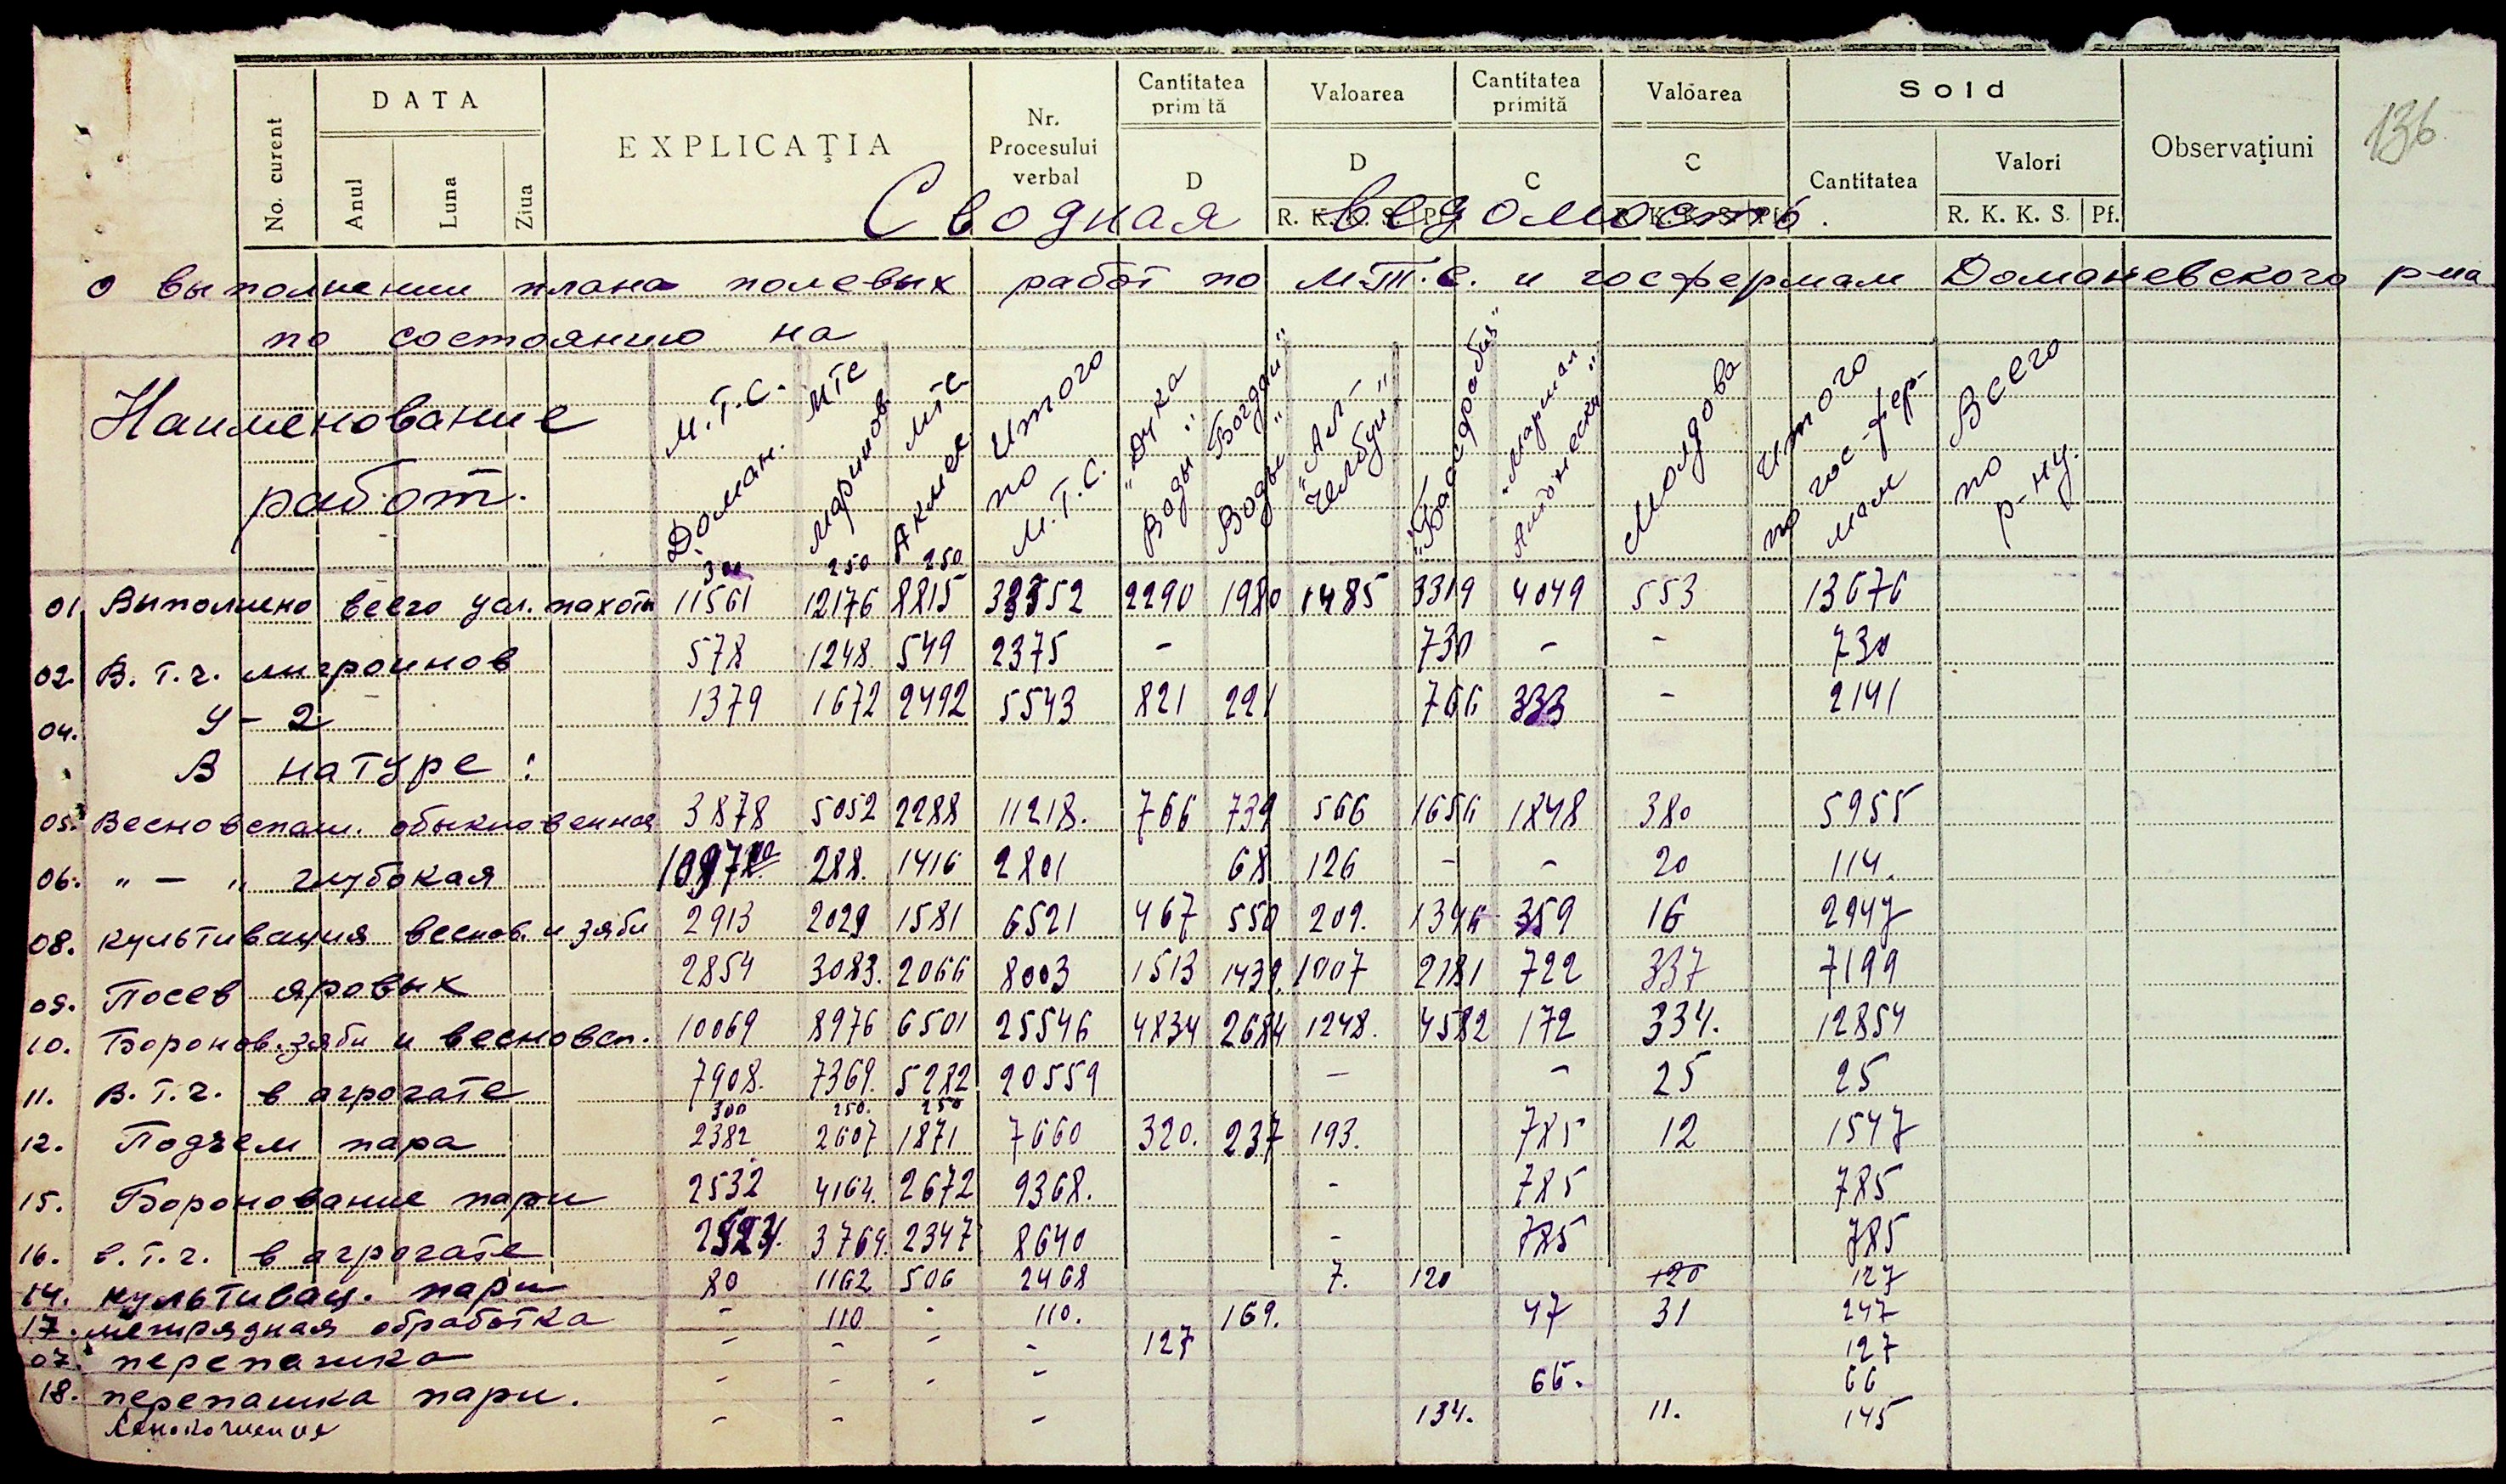 136
No. curent DATA EXPLICAŢIA Nr. Procesului verbal Cantitatea prim tă Valoarea Cantitatea primită Valoarea Sold Observaţiuni
Anul Luna Ziua D D C C Cantitatea Valori
R. K. K. S. Pf. R. K. K. S. Pf. R. K. K. S. Pf.
Сводная ведомость.
о выполнении плана полевых работ по М.Т.С. и госфермам Доманевского р-на
по состоянию на
Наименование работ. М.Т.С. Доман. МТС Маринов. МТС Акмеч. Итого по М.Т.С. "Дука Воды" Богдан Воды" "Ал-Челбун" "Басарабия" "Маришал Антонеску" Молдова Итого по гос-фермам Всего по р-ну.
300 250 250
01. Выполнено всего усл. пахоты 11561 12176 8815 33552 2290 1980 1485 3319 4049 553 13676
02. В. т. ч. лигроинов 578 1248. 549 2375 - 730 - - 730
04. У-2 1379 1672 2492 5543 821 221 766 333 - 2141
В натуре:
05. Весновспаш. обыкновенная 3878 5052 2288 11218. 766 739 566 1656 1848 380 5955
06. "-" глубокая 288. 1416 2801 68 126 - - 20 114.
08. культивация веснов. и зяби 2913 2029 1581 6521 467 550 209. 1346 359 16 2947
09. Посев яровых 2854 3083. 2066 8003 1513 1439. 1007 2181 722 337 7199
10. Боронов. зяби и весновсп. 10069 8976 6501 25546 4834 2684 1248. 4582 172 334. 12854
11. В. т. ч. в агрогате 7908. 7369. 5282 20559 - - 25 25
300 250. 250
12. Подъем пара 2382 2607 1871 7660 320. 237 193. 785 12 1547
15. Боронование пари 2532 4164. 2672 9368. - 785 785
16. в. т. ч. в агрогате 2524. 3769. 2347 8640 - 785 785
14. культивац. пари 80 1162 506 2468 7. 120 120 127
17. межрядная обработка - 110 - 110. 169. 47 31 247
07. перепашка - - - - 127 127
18. перепашка пари. - - - - 66. 66
Сенокошение - - - 134. 11. 145